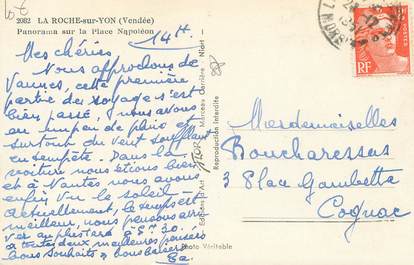 2082 LA ROCHE-sur-YON (Vendée)
Panorama sur la Place Napoléon
14 H.
Mes chéries,
Nous approchons de
Vannes, cette première
partie du voyage s'est
bien passé, nous avons
eu un peu de pluie et
surtout du vent soufflant
en tempête. Dans la
voiture nous étions bien
et à Nantes nous avons
enfin vu le soleil.
actuellement, le temps est
meilleur, nous pensons
à toutes deux, meilleures pensées
bons souhaits & bons baisers
Editions d'Art
Marceau Carrière - Niort
Reproduction Interdite
Photo Véritable
RF
Mesdemoiselles
Boucharessas
3 Place Gambetta
Cognac